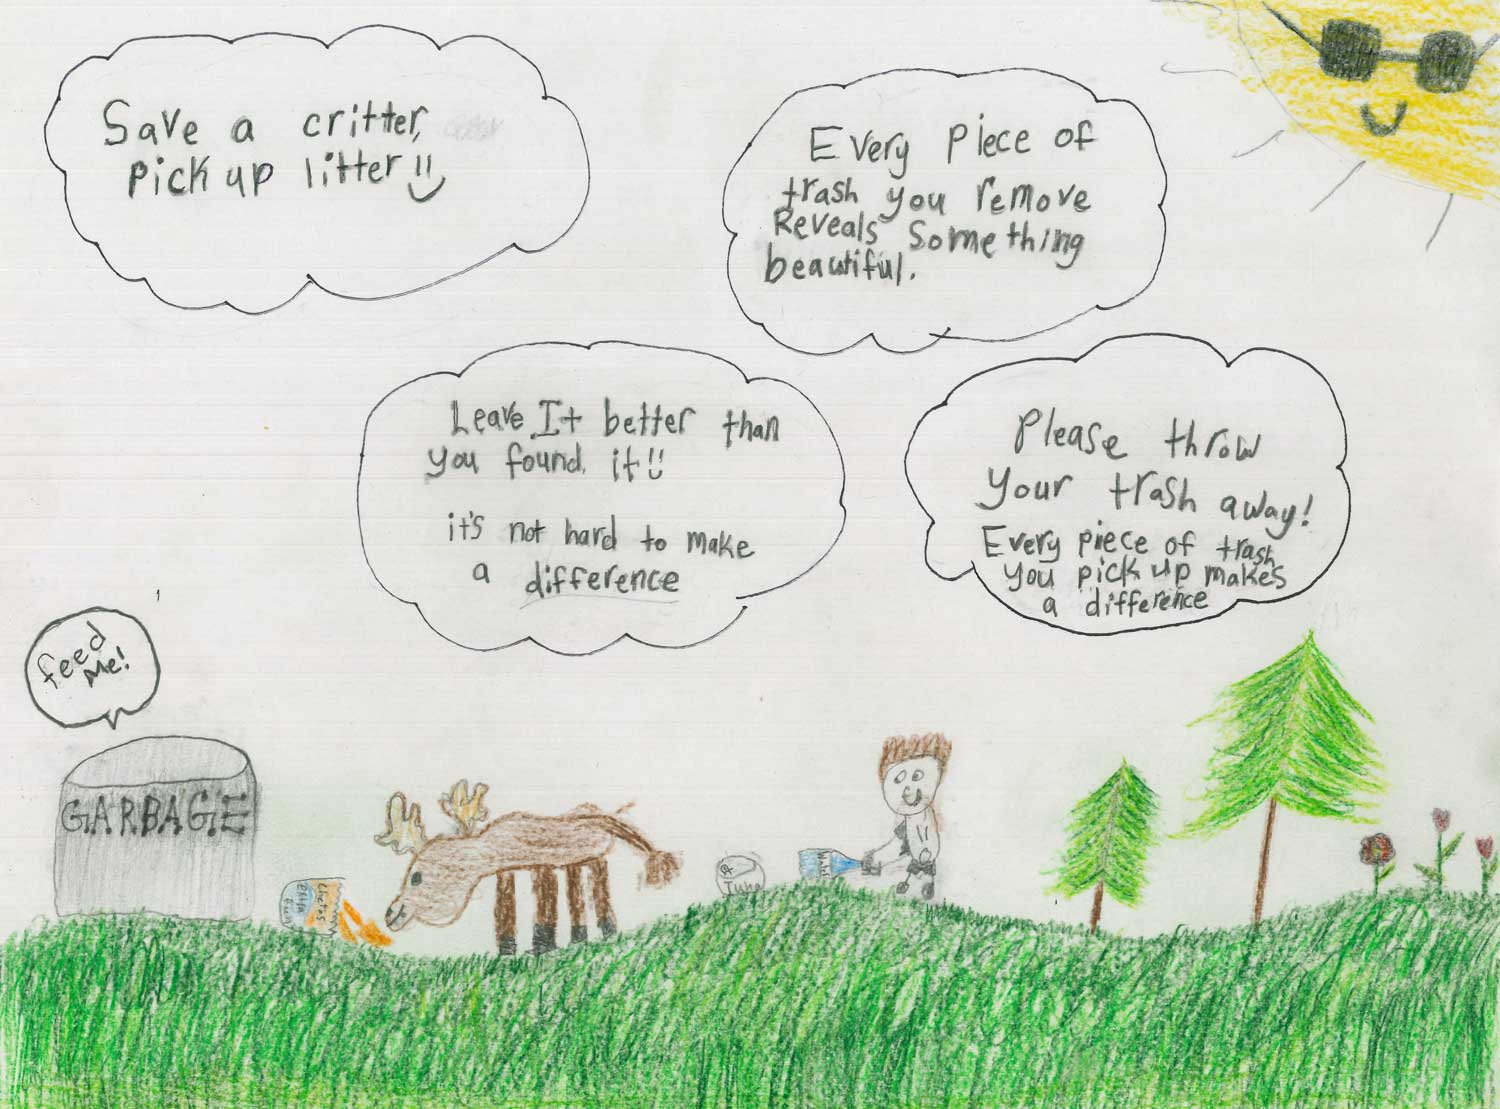 Save a critter,
pick up litter!!
Every piece of
trash you remove
Reveals something
beautiful.
Leave It better than
you found it!!
it's not hard to make
a difference
Please throw
your trash away!
Every piece of trash
you pick up makes
a difference
feed
Me!
GARBAGE
Tuna